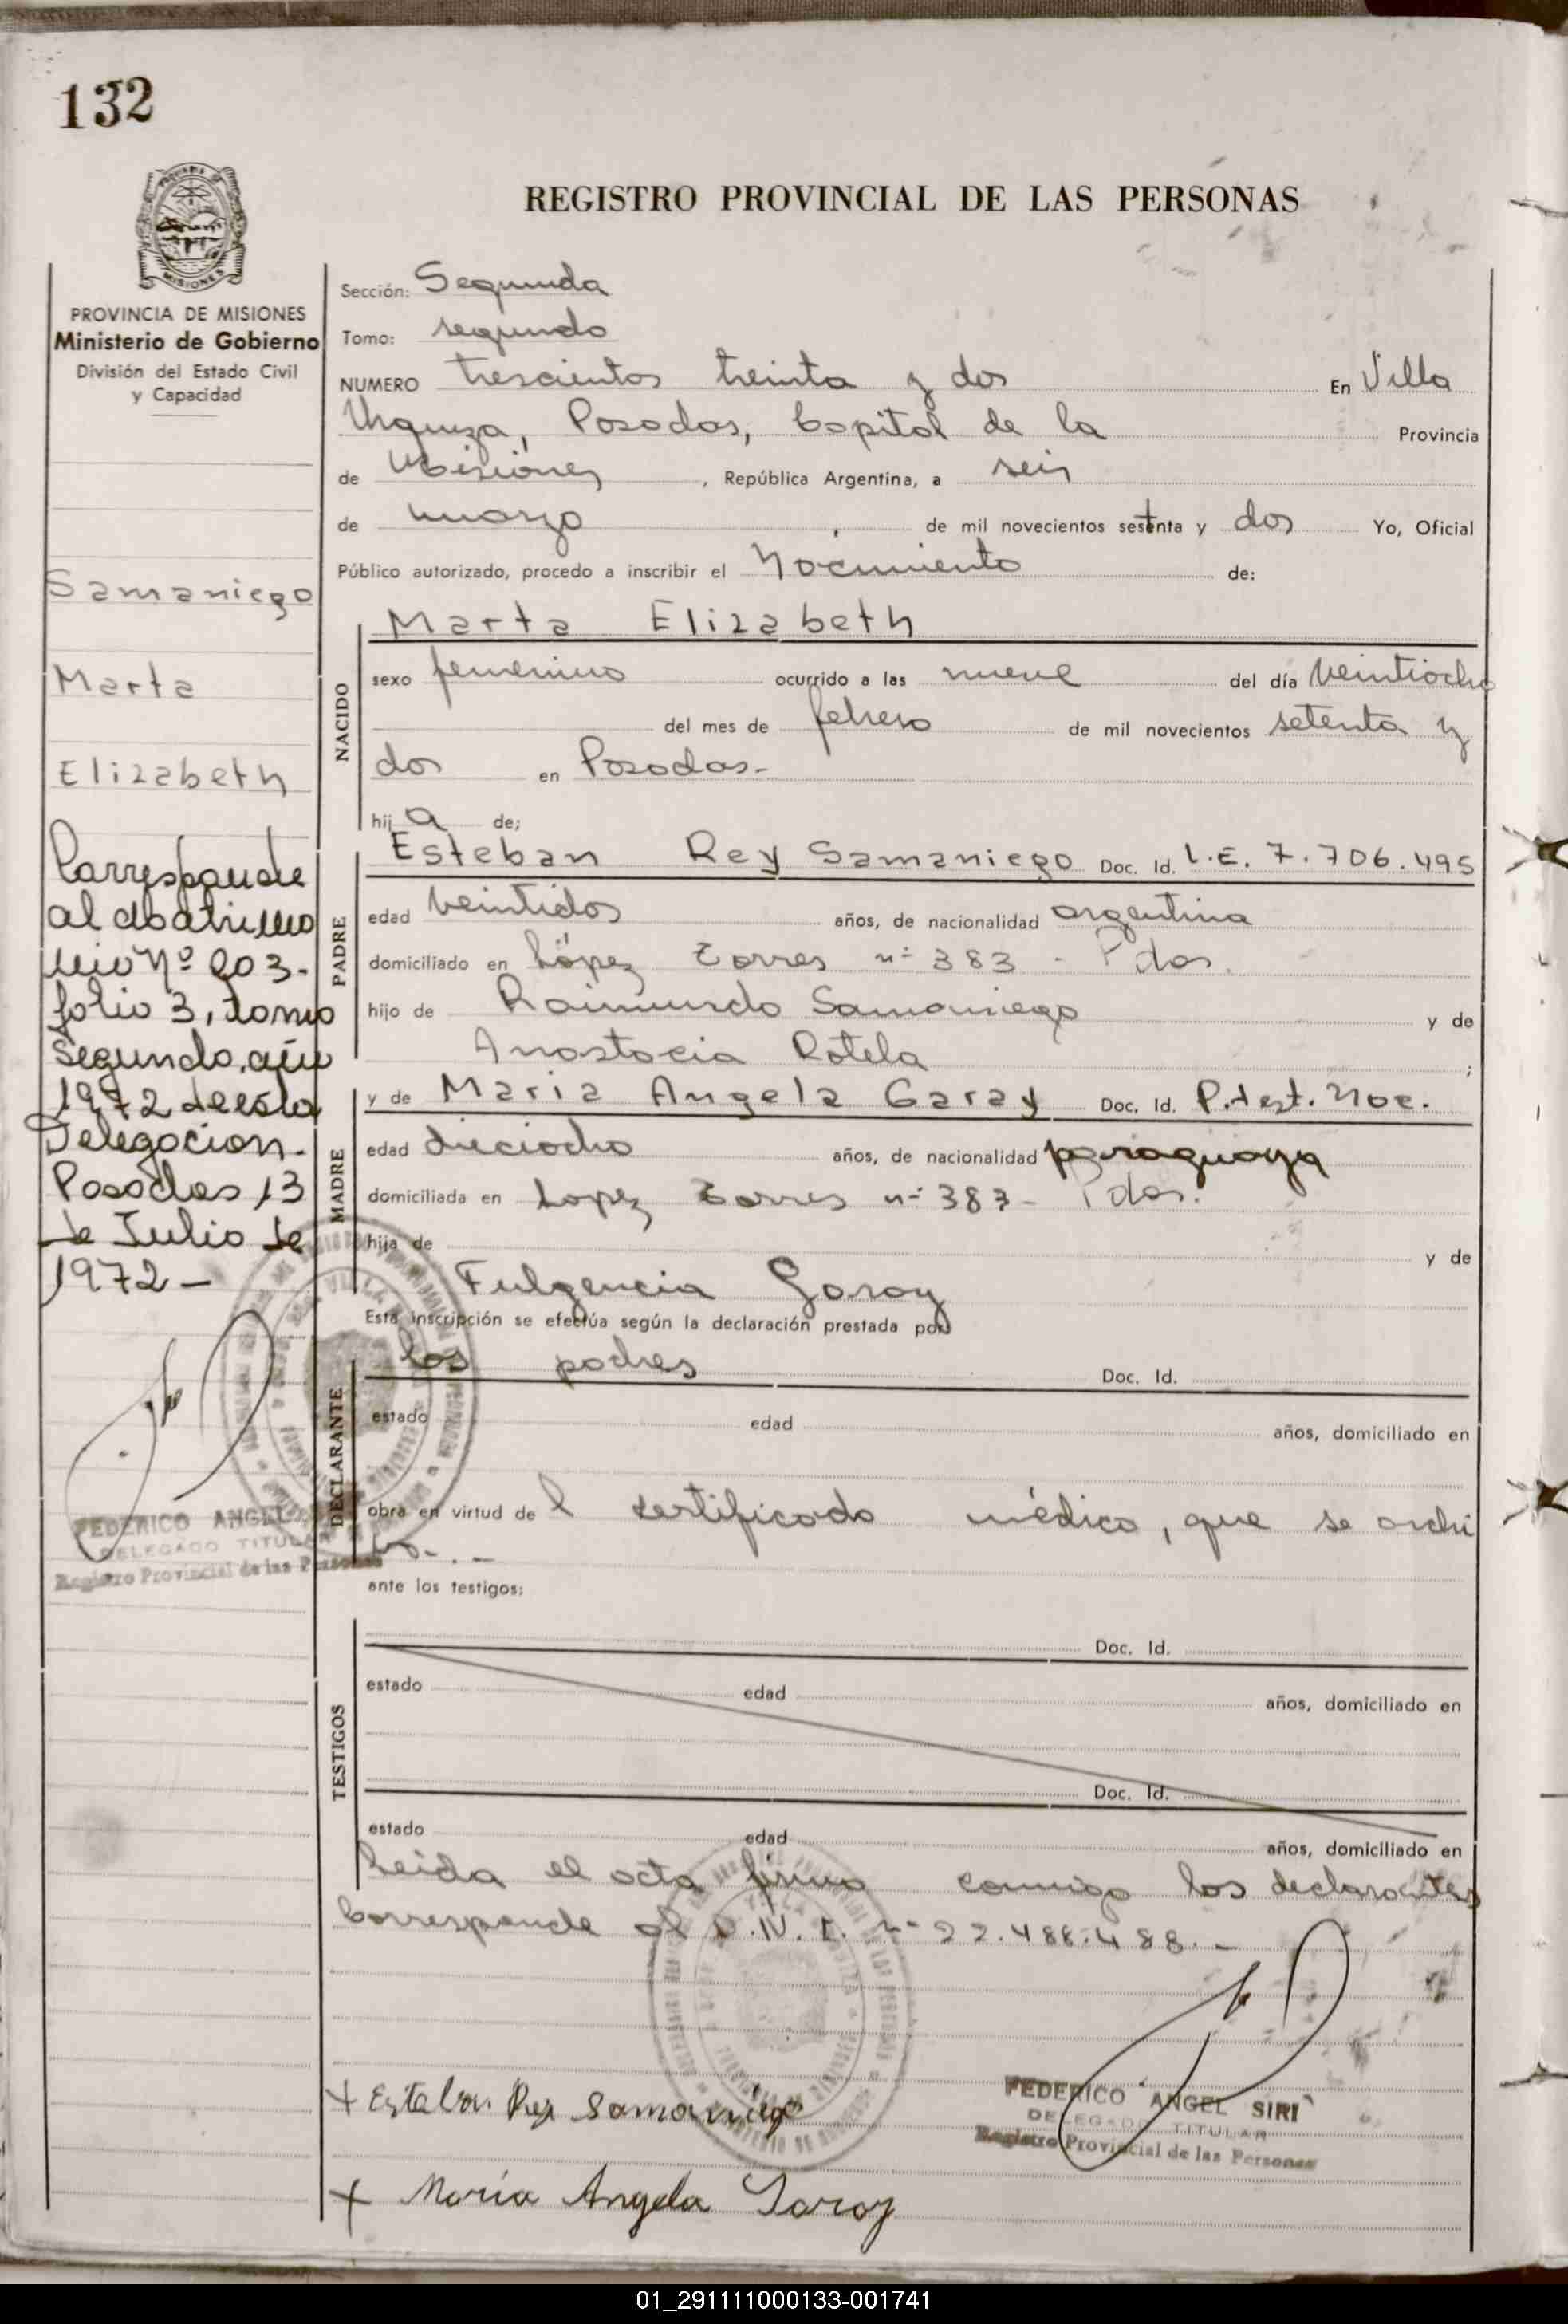 132
REGISTRO PROVINCIAL DE LAS PERSONAS
MISIONES
PROVINCIA DE MISIONES
Ministerio de Gobierno
División del Estado Civil
y Capacidad
Samaniego
Marta
Elizabeth
Corresponde
al matrimo
nio Nº 203-
folio 3, tomo
Segundo, año
1972 de esta
Delegacion-
Posadas 13
de Julio de
1972-
FEDERICO ANGEL
DELEGADO TITULAR
Registro Provincial de las Personas
Sección: Segunda
Tomo: segundo
NUMERO trescientos treinta y dos En Villa
Urquiza, Posadas, Capital de la Provincia
de Misiones, República Argentina, a seis
de marzo, de mil novecientos setenta y dos Yo, Oficial
Público autorizado, procedo a inscribir el Nacimiento de:
NACIDO
Marta Elizabeth
sexo femenino ocurrido a las nueve del día veintiocho
del mes de febrero de mil novecientos setenta y
dos en Posadas-
hija de;
PADRE
Esteban Rey Samaniego Doc. Id. L.E. 7.706.495
edad veintidos años, de nacionalidad argentina
domiciliado en López Torres nº 383 - Pdas.
hijo de Raimundo Samaniego y de
Anastacia Rotela ;
MADRE
y de Maria Angela Garay Doc. Id. P.test. Noc.
edad dieciocho años, de nacionalidad paraguaya
domiciliada en Lopez Torres nº 383- Pdas.
hija de y de
Fulgencia Garay
Esta inscripción se efectúa según la declaración prestada por
DECLARANTE
los padres Doc. Id.
estado edad años, domiciliado en
obra en virtud del certificado médico, que se archi
va.-.-
ante los testigos:
TESTIGOS
Doc. Id.
estado edad años, domiciliado en
Doc. Id.
estado edad años, domiciliado en
Leida el acta firma conmigo los declarantes
Corresponde al D.N.I. nº 22.488.488.-
+ Esteban Rey Samaniego
FEDERICO ANGEL SIRI
DELEGADO TITULAR
Registro Provincial de las Personas
+ María Angela Garay
01_291111000133-001741